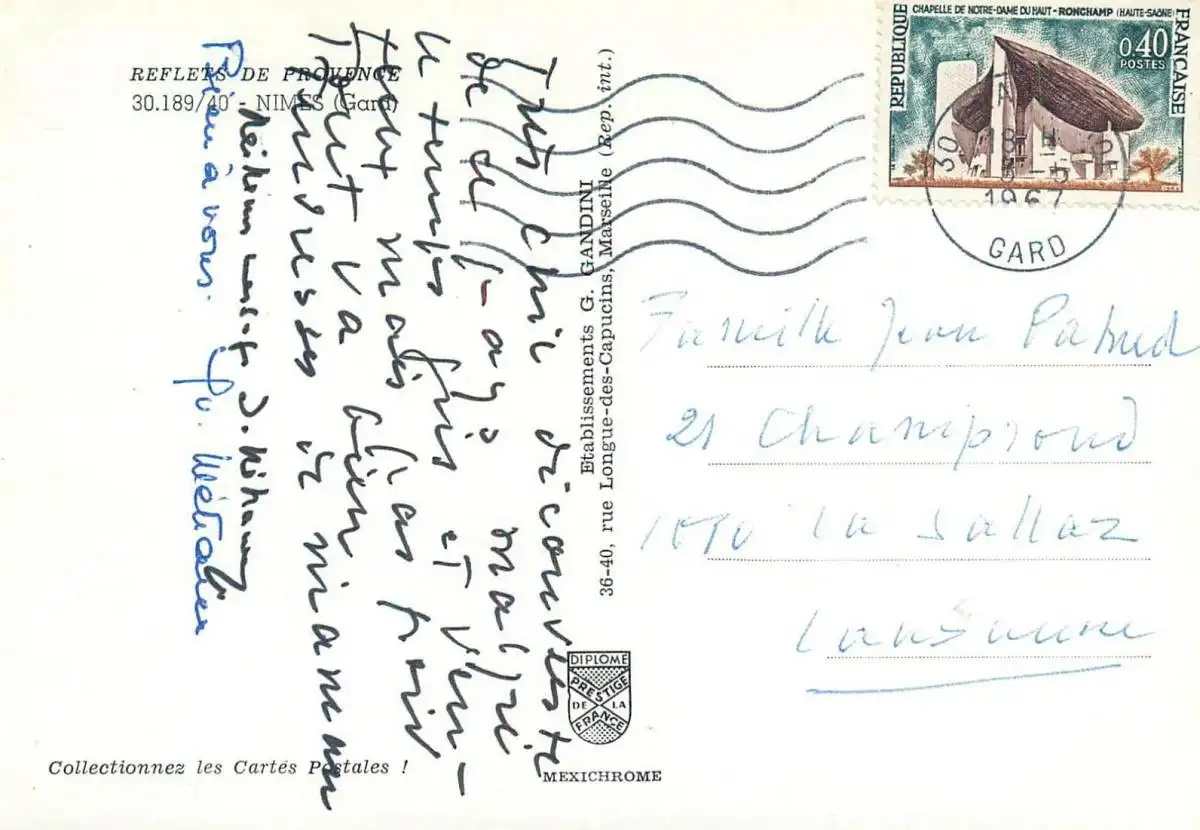 CHAPELLE DE NOTRE-DAME DU HAUT - RONCHAMP (HAUTE-SAÔNE)
RÉPUBLIQUE
FRANÇAISE
0,40
POSTES
30
1967
GARD
REFLETS DE PROVENCE
30.189/40 - NIMES (Gard)
Très chic découverte
de ce pays malgré
le temps gris et ven-
teux mais pas froid
Tout va bien
Tendresses de maman
Bien à vous.
Etablissements G. GANDINI
36-40, rue Longue-des-Capucins, Marseille (Rep. int.)
Famille Jean
21 Champrond
La Sallaz
Lausanne
DIPLOME
PRESTIGE
DE LA
FRANCE
MEXICHROME
Collectionnez les Cartes Postales !